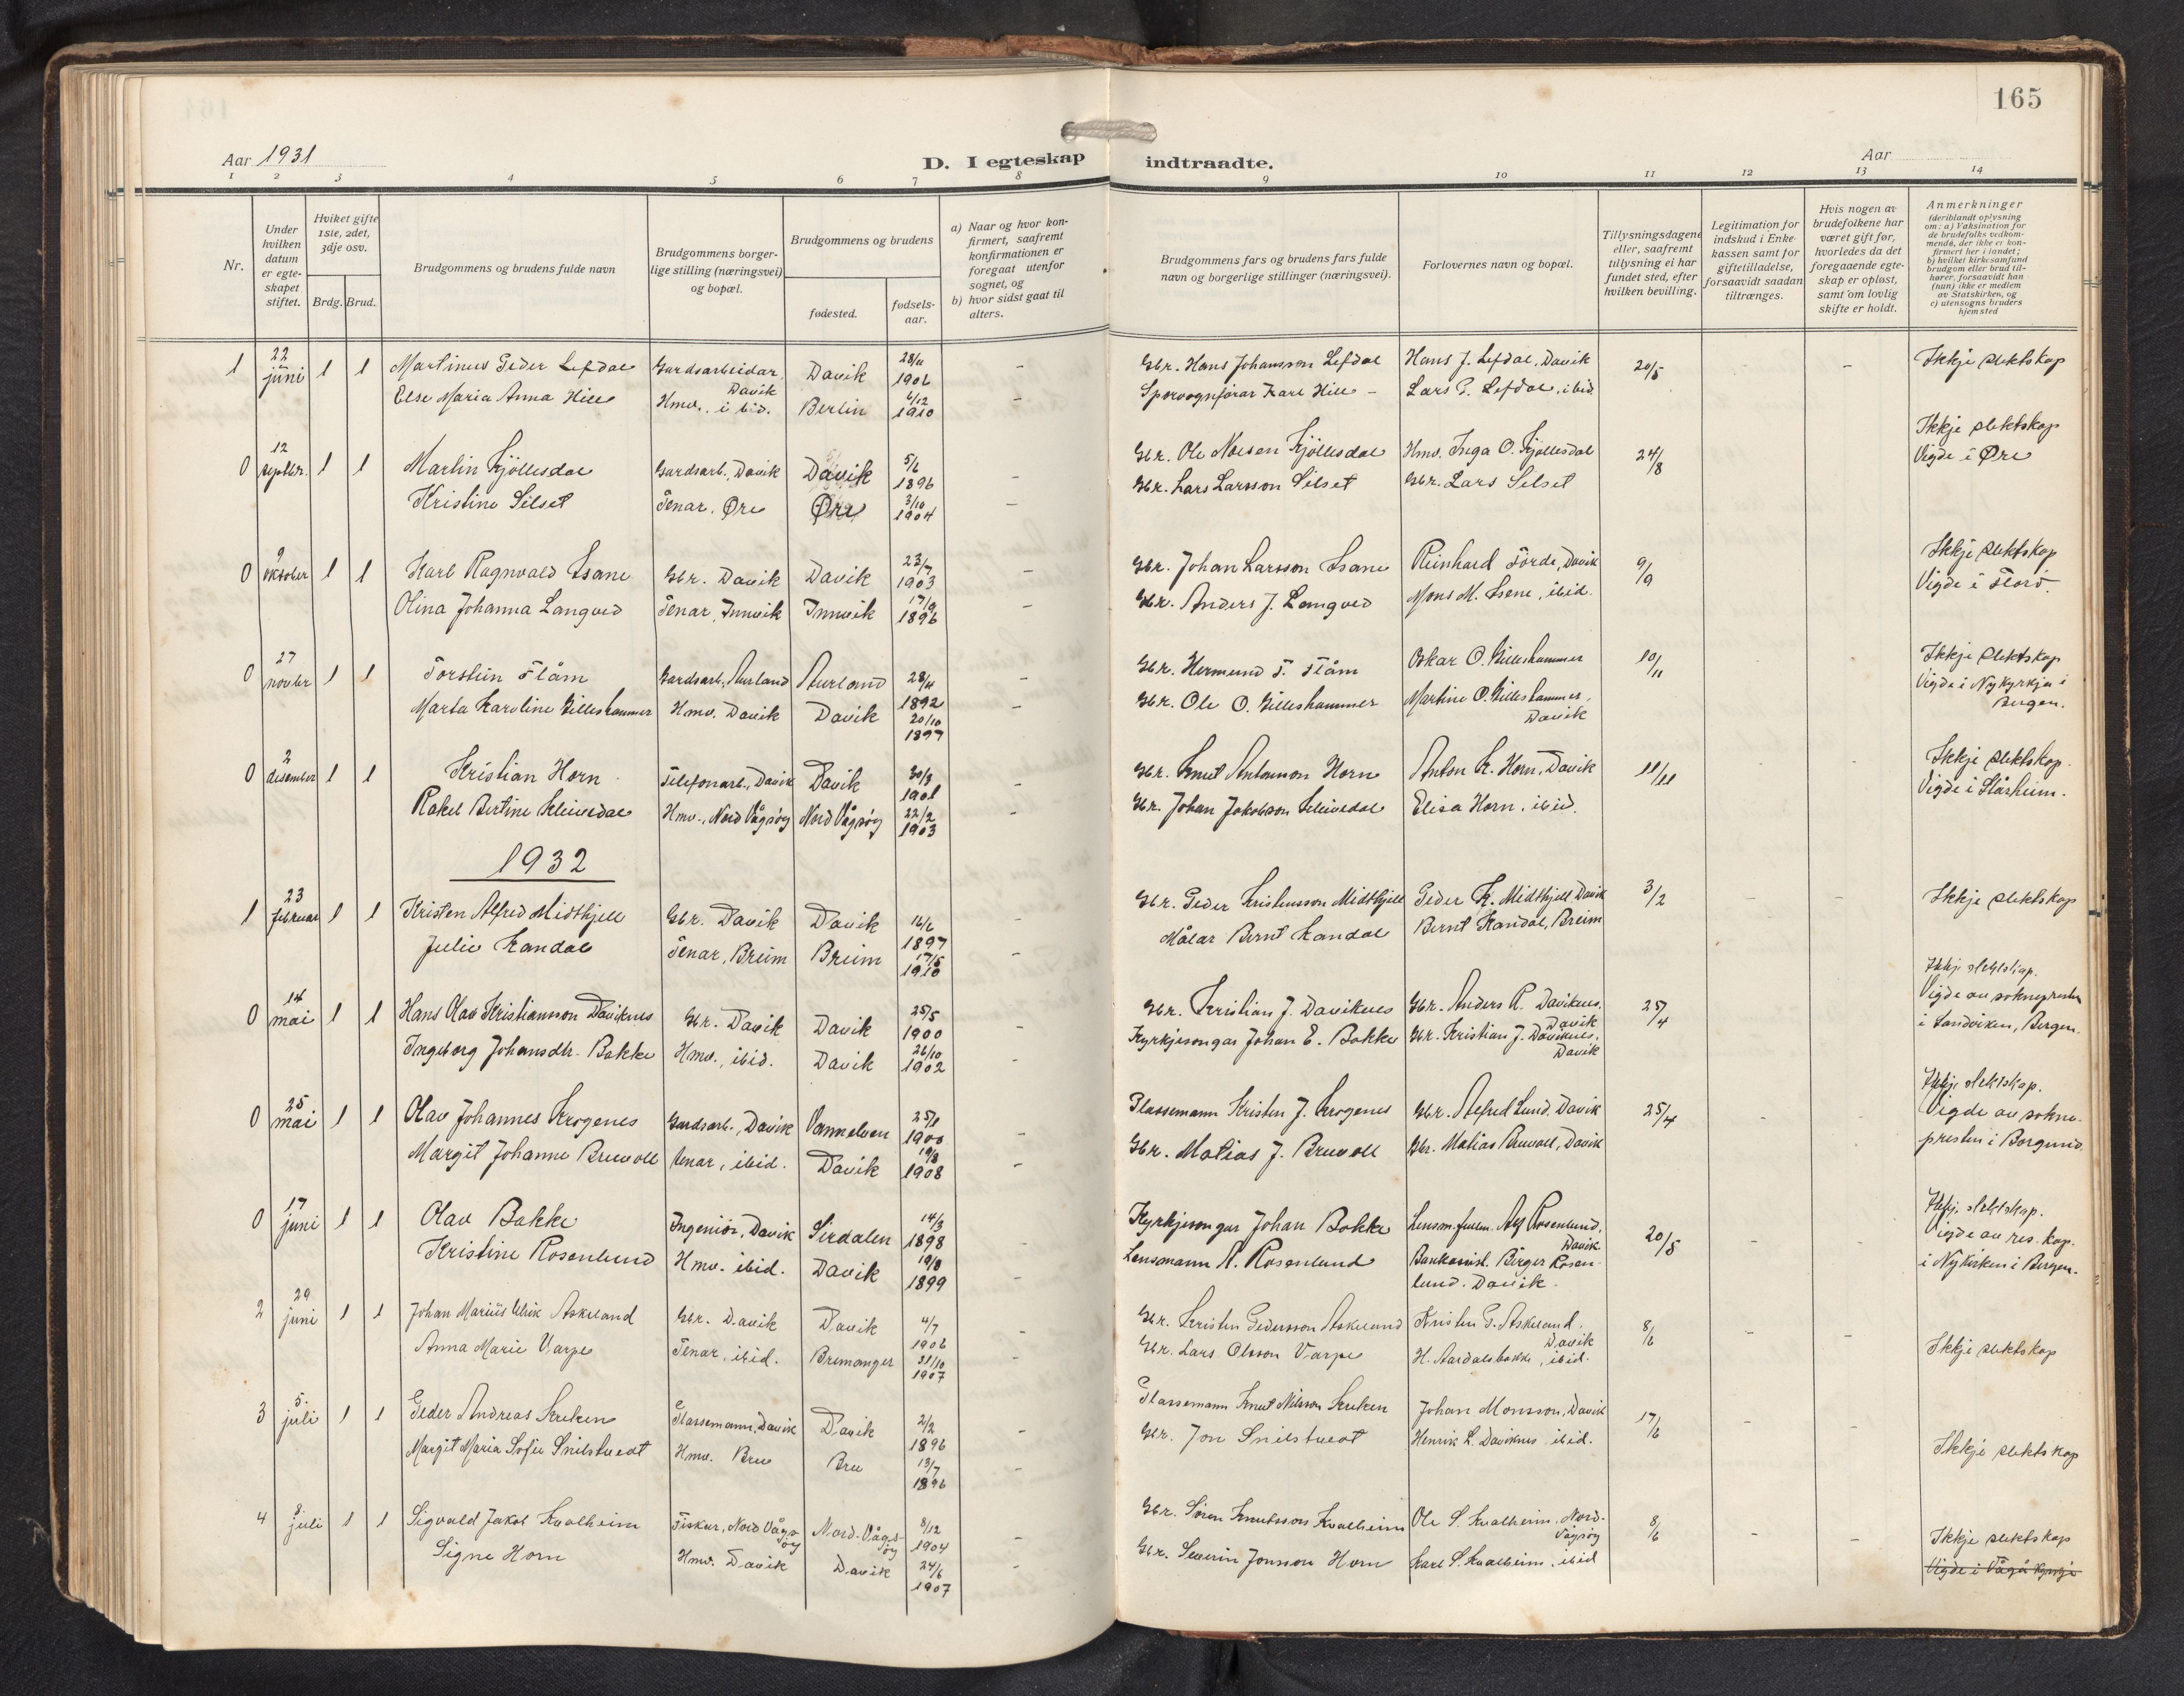 165
Aar 1931
D. I egteskap indtraadte.
Aar
1 2 3 4 5 6 7 8 9 10 11 12 13 14
Nr.
Under hvilken datum er egteskapet stiftet.
Hviket gifte 1ste, 2det, 3dje osv.
Brdg. Brud.
Brudgommens og brudens fulde navn
Brudgommens borgerlige stilling (næringsvei) og bopæl.
Brudgommens og brudens
fødested.
fødselsaar.
a) Naar og hvor konfirmert, saafremt konfirmationen er foregaat utenfor sognet, og
b) hvor sidst gaat til alters.
Brudgommens fars og brudens fars fulde navn og borgerlige stillinger (næringsvei).
Forlovernes navn og bopæl.
Tillysningsdagene eller, saafremt tillysning ei har fundet sted, efter hvilken bevilling.
Legitimation for indskud i Enkekassen samt for giftetilladelse, forsaavidt saadan tiltrænges.
Hvis nogen av brudefolkene har været gift før, hvorledes da det foregaaende egteskap er opløst, samt om lovlig skifte er holdt.
Anmerkninger
(deriblandt oplysning om: a) Vaksination for de brudefolks vedkommende, der ikke er konfirmert her i landet; b) hvilket kirkesamfund brudgom eller brud tilhører, forsaavidt han (hun) ikke er medlem av Statskirken, og c) utensogns bruders hjemsted
1 22 juni 1 1 Martinus Peder Lefdal Gardsarbeidar, Davik Davik 28/11 1906 - Gbr. Hans Johansson Lefdal Hans J. Lefdal, Davik 20/5 - Ikkje slektskap
Else Maria Anna Hille Hmv., ibid. Berlin 6/12 1910 - Sporvognførar Karl Hille - Lars P. Lefdal, ibid.
0 12 septbr. 1 1 Martin Kjöllesdal Gardsarb., Davik Davik 5/6 1896 - Gbr. Ole Nilsen Kjöllesdal Hmv. Inga O. Kjøllesdal 24/8 Ikkje slektskap
Kristine Silset Tenar, Øre Øre 3/10 1904 - Gbr. Lars Larsson Silset Gbr. Lars Silset Vigde i Øre
0 9 oktober 1 1 Karl Ragnvald Isane Gbr. Davik Davik 23/7 1903 - Gbr. Johan Larsson Isane Reinhard Förde, Davik 9/9 Ikkje slektskap
Olina Johanna Langved Tenar, Innvik Innvik 17/9 1896 - Gbr. Anders J. Langved Mons M. Isene, ibid. Vigde i Florö.
0 27 novbr 1 1 Torstein Flåm Gardsarb., Aurland Aurland 28/4 1892 - Gbr. Hermund T. Flåm Oskar O. Gilleshammer 10/11 Ikkje slektskap
Marta Karoline Gilleshammer Hmv. Davik Davik 20/10 1897 - Gbr. Ole O. Gilleshammer Martine O. Gilleshammer, Davik Vigde i Nykyrkja i Bergen.
0 2 desember 1 1 Kristian Horn Telefonarb., Davik Davik 30/3 1901 - Gbr. Knut Antonson Horn Anton K. Horn, Davik 11/11 Ikkje slektskap.
Rakel Bertine Kleivedal Hmv., Nord Vågsøy Nord Vågsøy 22/2 1903 - Gbr. Johan Jakobson Kleivedal Elisa Horn, ibid. Vigde i Stårheim.
1932
1 23 februar 1 1 Kristen Alfred Midthjell Gbr. Davik Davik 16/6 1897 - Gbr. Peder Kristensson Midthjell Peder K. Midthjell, Davik 3/2 - - Ikkje slektskap
Julie Kandal Tenar, Breim Breim 17/5 1910 - Målar Bernt Kandal Bernt Kandal, Breim
0 14 mai 1 1 Hans Olav Kristiansson Daviknes Gbr. Davik Davik 25/5 1900 - Gbr. Kristian J. Daviknes Gbr. Anders R. Daviknes, Davik 25/4 Ikkje slektskap.
Ingeborg Johansdtr. Bakke Hmv., ibid. Davik 26/10 1902 - Kyrkjesongar Johan E. Bakke Gbr. Kristian J. Daviknes, Davik Vigde av soknepresten i Sandviken, Bergen.
0 25 mai 1 1 Olav Johannes Krogenes Gardsarb., Davik Vannelven 25/1 1900 - Plassemann Kristen J. Krogenes Gbr. Alfred Lund, Davik 25/4 - - Ikkje slektskap.
Margit Johanne Bruvoll tenar, ibid. Davik 19/8 1908 - Gbr. Matias J. Bruvoll Gbr. Matias Bruvoll, Davik Vigde av soknepresten i Borgund.
0 17 juni 1 1 Olav Bakke Ingeniör, Davik Sirdalen 14/3 1898 - Kyrkjesongar Johan Bakke Lensm.fullm. Alf Rosenlund, Davik 20/5 - - Ikkje slektskap.
Kristine Rosenlund Hmv. ibid. Davik 19/8 1899 - Lensmann A. Rosenlund Birger Rosenlund. Davik. Vigde av res. kap. i Nykirken i Bergen.
2 29 juni 1 1 Johan Marius Ulrik Askeland Gbr. Davik Davik 4/7 1906 - Gbr. Kristen Pedersson Askeland Kristen P. Askeland, Davik 8/6 - - Ikkje slektskap
Anna Marie Varpe Tenar, ibid. Bremanger 31/10 1907 - Gbr. Lars Olsson Varpe H. Aardalsbakke, ibid.
3 5. juli 1 1 Peder Andreas Kreken Plassemann, Davik Davik 2/2 1896 - Plassemann Knut Nilsson Kreken Johan Monsson, Davik 17/6 - - Ikkje slektskap
Margit Maria Sofie Snilstveit Hmv. Bru Bru 13/7 1896 - Gbr. Jon Snilstveit Henrik L. Daviknes, ibid.
4 8. juli 1 1 Sigvald Jakob Kvalheim Fiskar, Nord Vågsøy Nord-Vågsøy 8/12 1904 - Gbr. Sören Knutsson Kvalheim Ole S. Kvalheim, Nord-Vågsøy 8/6 - Ikkje slektskap
Signe Horn Hmv. Davik Davik 24/6 1907 - Gbr. Severin Jonsson Horn Karl S. Kvalheim, ibid Vigde i Vågå kyrkje